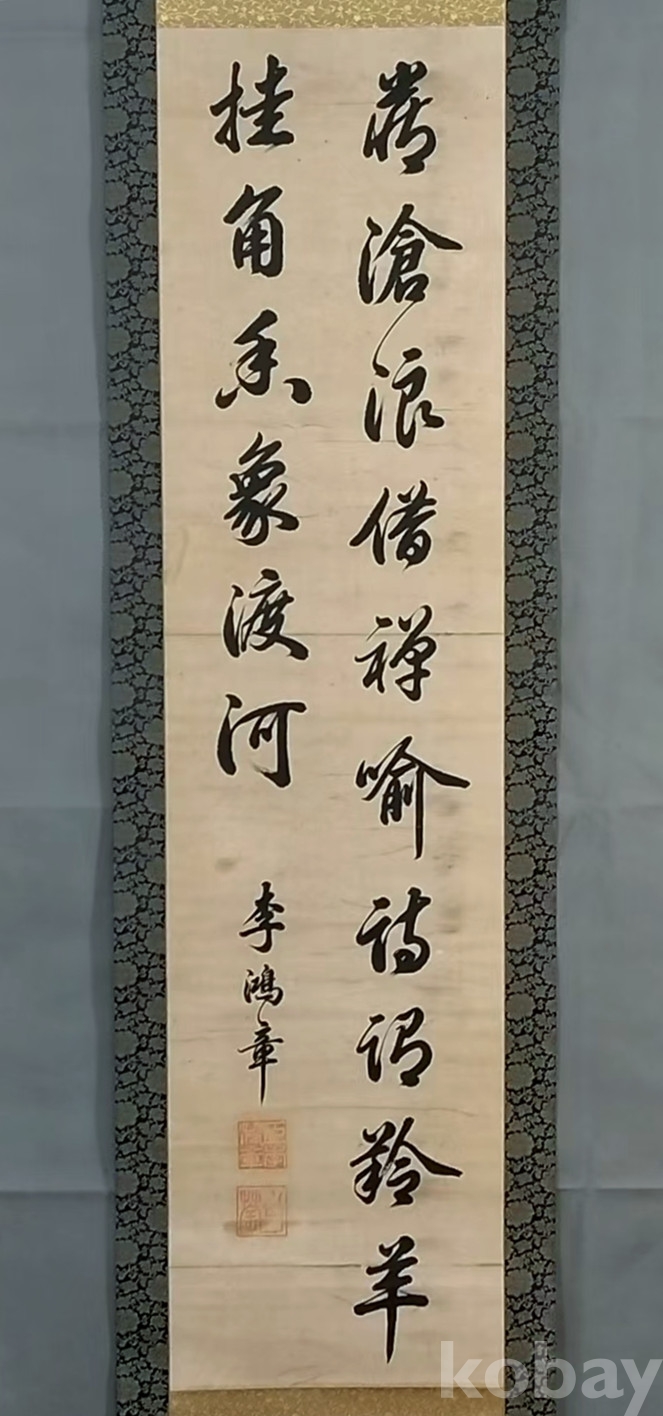 嚴滄浪借禪喻詩謂羚羊
挂角香象渡河
李鴻章
kobay